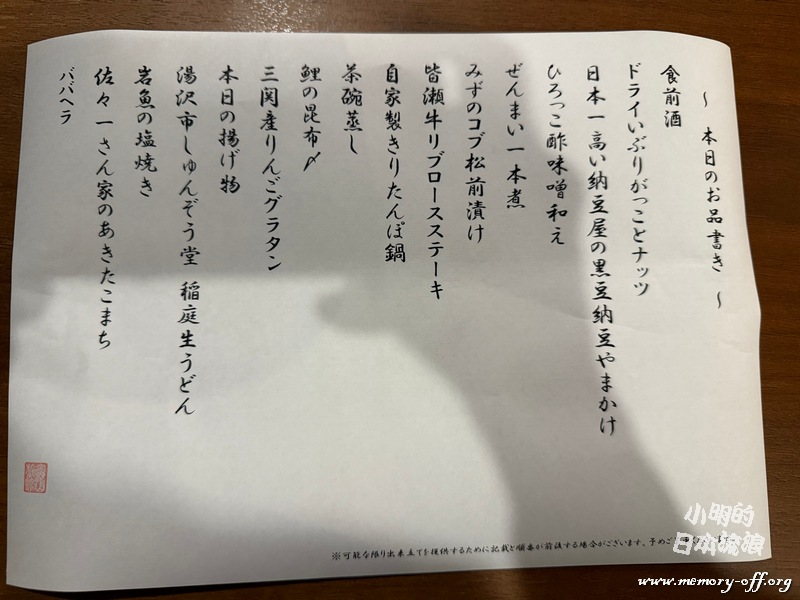 ～ 本日のお品書き ～
食前酒
ドライいぶりがっことナッツ
日本一高い納豆屋の黒豆納豆やまかけ
ひろっこ酢味噌和え
ぜんまい一本煮
みずのコブ松前漬け
皆瀬牛リブロースステーキ
自家製きりたんぽ鍋
茶碗蒸し
鯉の昆布〆
三関産りんごグラタン
本日の揚げ物
湯沢市しゅんぞう堂 稲庭生うどん
岩魚の塩焼き
佐々一さん家のあきたこまち
ババヘラ
※可能な限り出来立てを提供するために記載と順番が前後する場合がございます。予めご
小明的
日本流浪
www.memory-off.org